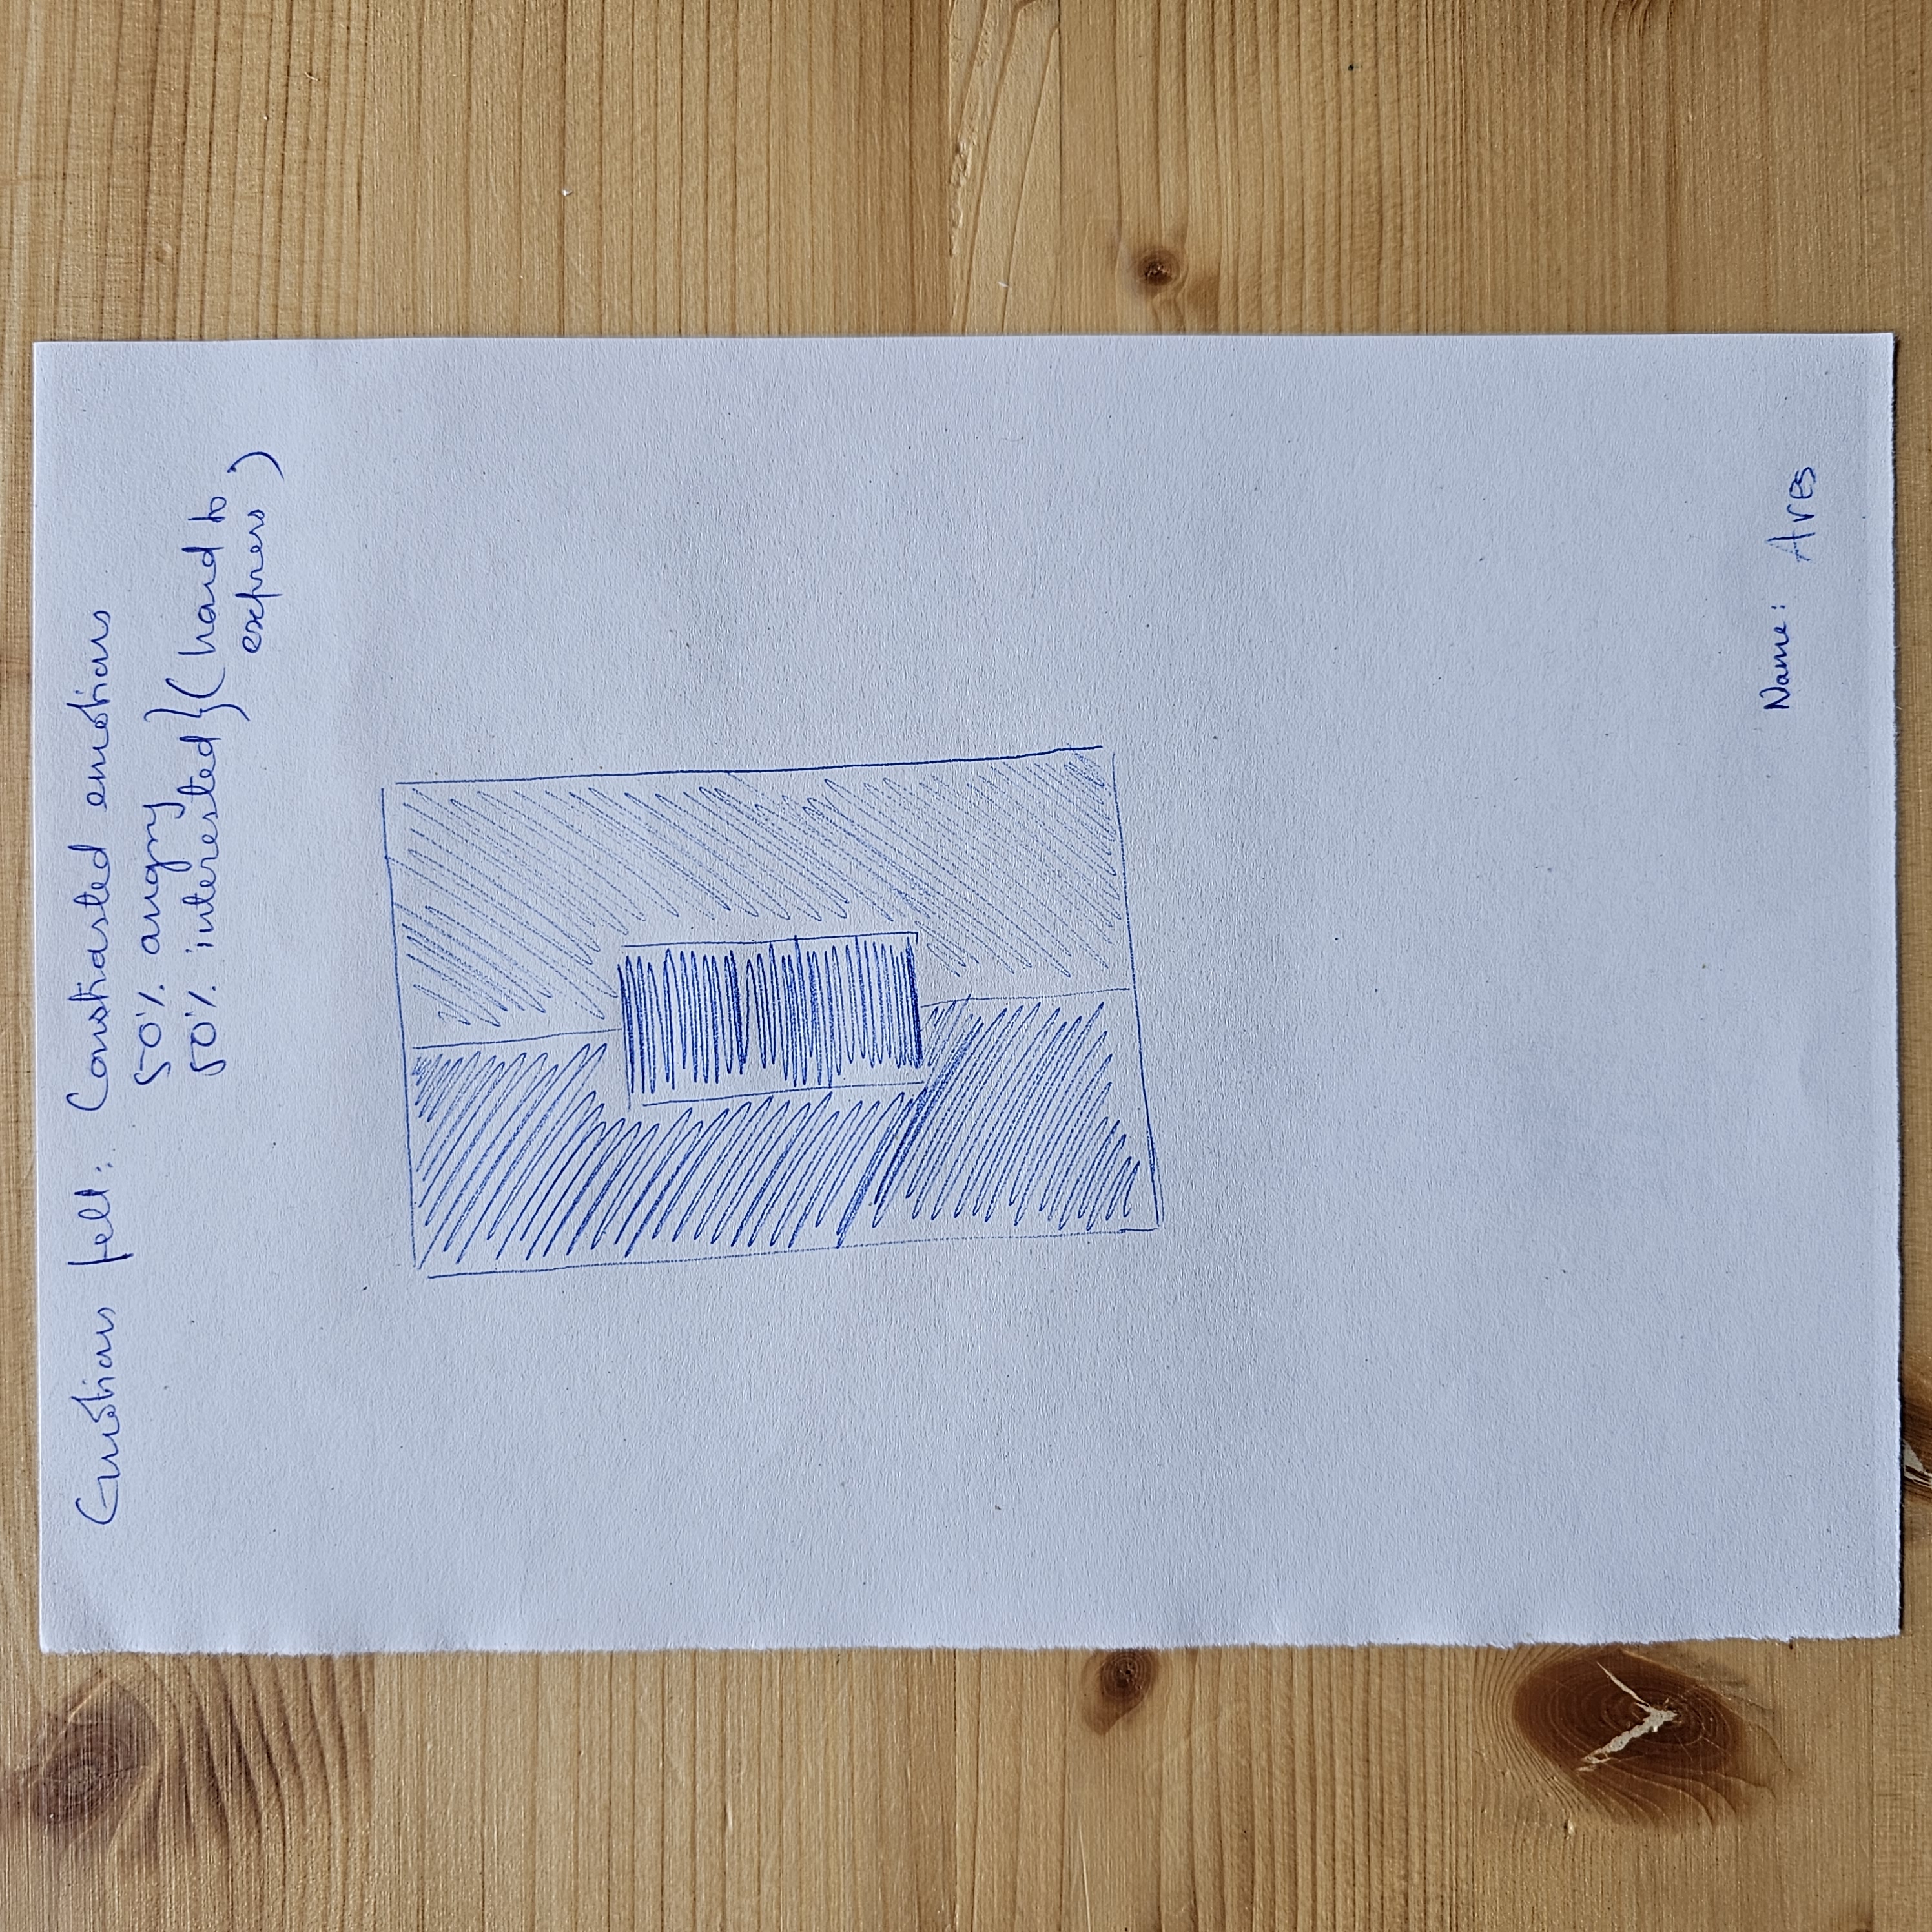 Emotions felt: Constrasted emotions
50% angry
50% interested } (hard to
express)
Name: Ares